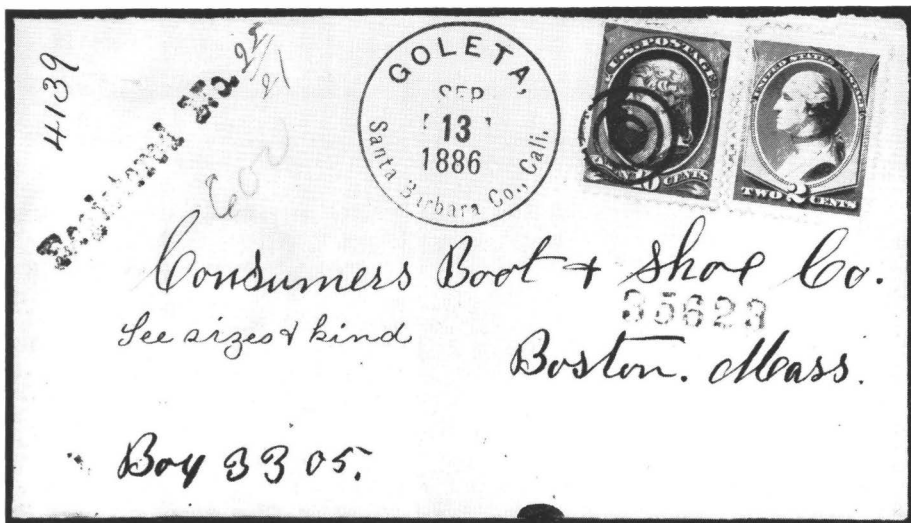 4139
Registered No.
GOLETA,
SEP
13
1886
Santa Barbara Co., Cali.
U.S. POSTAGE
10 CENTS
UNITED STATES POSTAGE
TWO 2 CENTS
Consumers Boot & Shoe Co.
35623
See sizes & kind
Boston. Mass.
Box 3305.